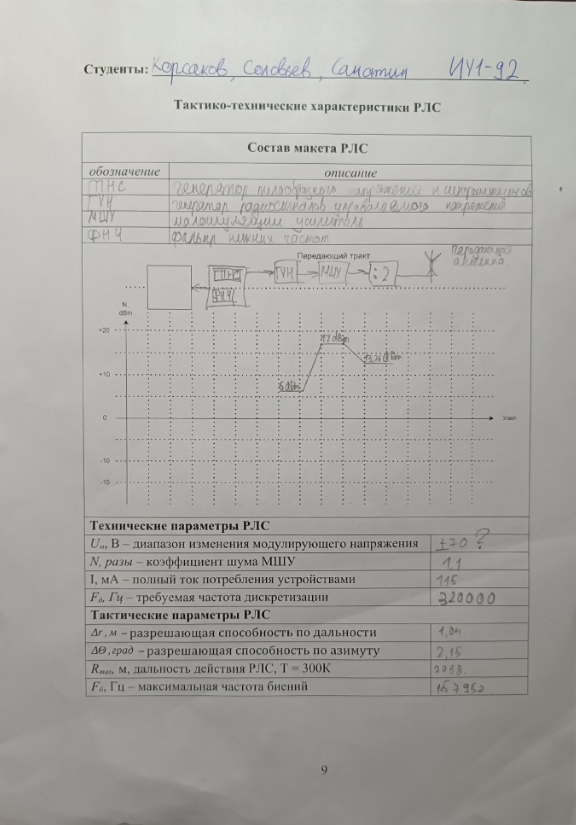 Студенты: Корсаков, Соловьев, Санаткин ИУ1-92
Тактико-технические характеристики РЛС
Состав макета РЛС
обозначение описание
генератор пилообразного напряжения и
ГУН генератор радиосигналов управляемого напряжения
МШУ малошумящий усилитель
ФНЧ фильтр нижних частот
Передающая антенна
Передающий тракт
ГПНС ГУН МШУ :2
ФНЧ
N, dBm
+20
+10
0
-10
-15
17 dBm
13,26 dBm
Узел
Технические параметры РЛС
Uм, В – диапазон изменения модулирующего напряжения ±70 ?
N, разы – коэффициент шума МШУ 1,1
I, мА – полный ток потребления устройствами 115
Fд, Гц – требуемая частота дискретизации 320000
Тактические параметры РЛС
Δr, м – разрешающая способность по дальности 1,04
ΔΘ, град – разрешающая способность по азимуту 2,15
Rmax, м, дальность действия РЛС, T = 300K
Fб, Гц – максимальная частота биений 157952
9